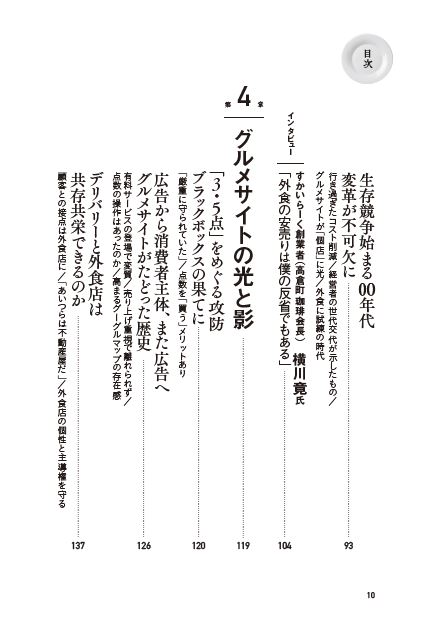 目次
生存競争始まる00年代
変革が不可欠に 93
行き過ぎたコスト削減/経営者の世代交代が示したもの/
グルメサイトが「個店」に光/外食に試練の時代
インタビュー
すかいらーく創業者(高倉町珈琲会長) 横川竟氏
「外食の安売りは僕の反省でもある」 104
第4章
グルメサイトの光と影 119
「3・5点」をめぐる攻防
ブラックボックスの果てに 120
「厳重に守られていた」/点数を「買う」メリットあり
広告から消費者主体、また広告へ
グルメサイトがたどった歴史 126
有料サービスの登場で変質/売り上げ重視で離れられず/
点数の操作はあったのか/高まるグーグルマップの存在感
デリバリーと外食店は
共存共栄できるのか 137
顧客との接点は外食店に/「あいつらは不動産屋だ」/外食店の個性と主導権を守る
10